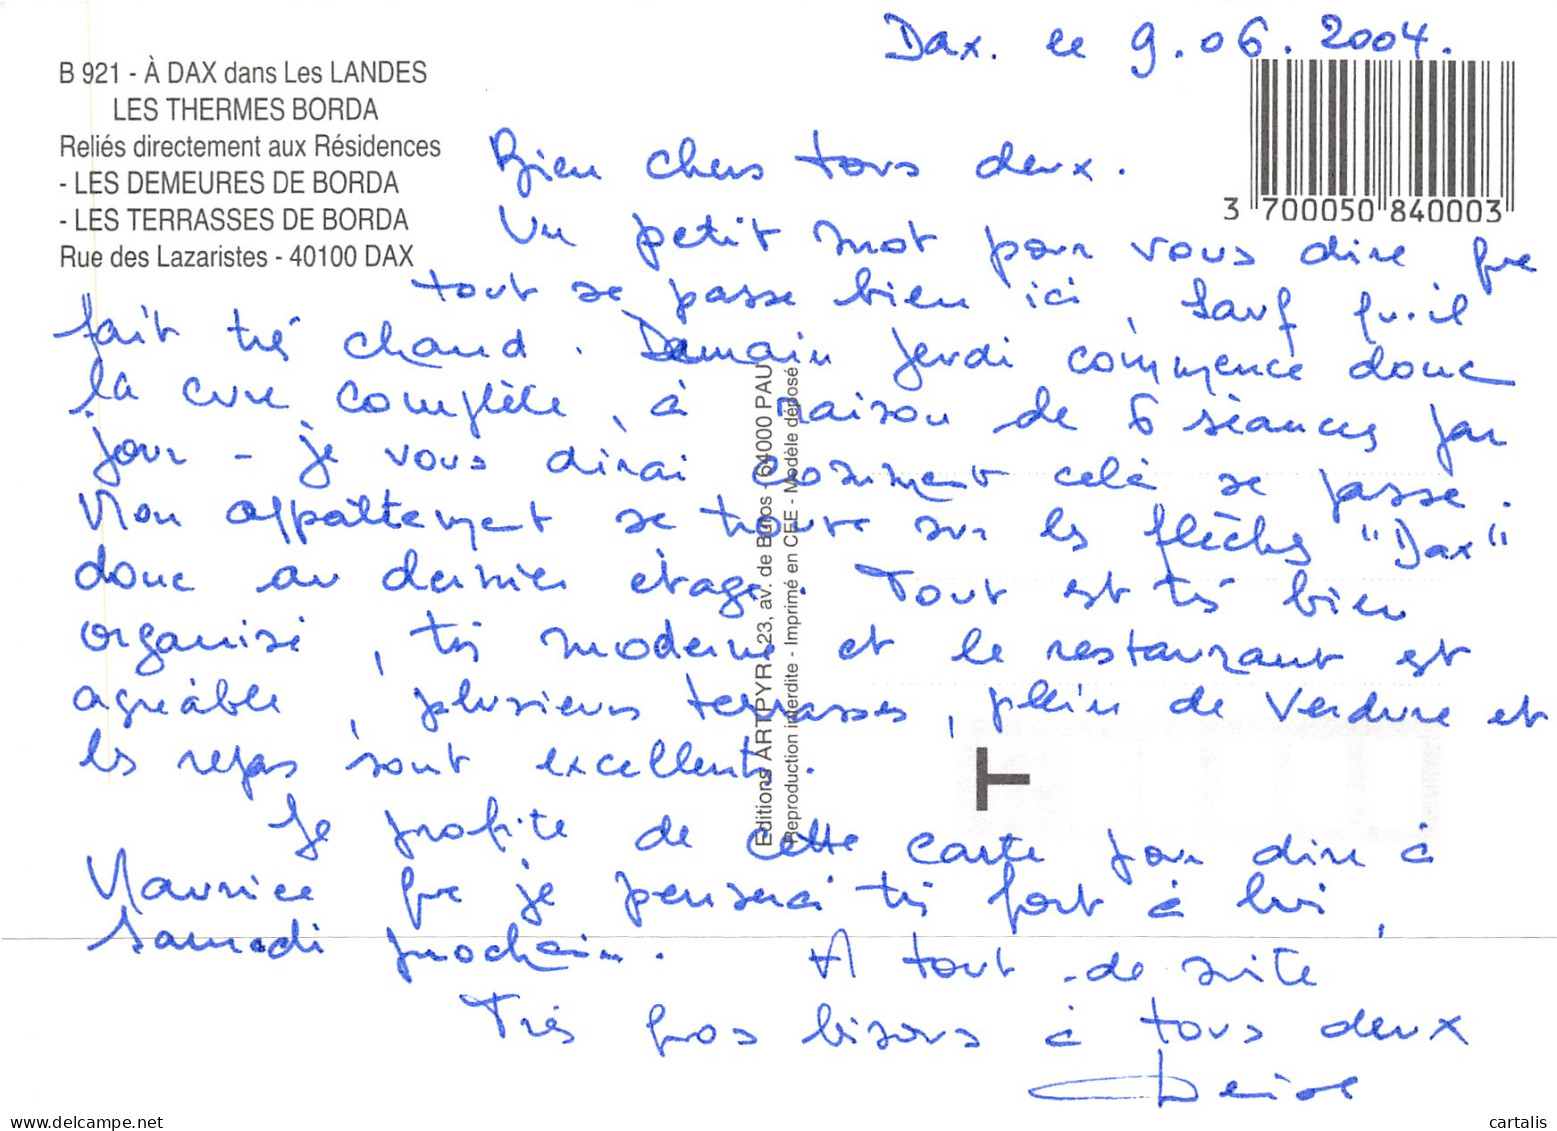 Dax. le 9.06.2004.
B 921 - À DAX dans Les LANDES
LES THERMES BORDA
Reliés directement aux Résidences
- LES DEMEURES DE BORDA
- LES TERRASSES DE BORDA
Rue des Lazaristes - 40100 DAX
3 700050 840003
Bien chers tous deux.
Un petit mot pour vous dire que
tout se passe bien ici, sauf qu'il
fait très chaud. Demain jeudi commence donc
la cure complète, à raison de 6 séances par
jour - je vous dirai comment celà se passe.
Mon appartement se trouve sur les flèches "Dax"
donc au dernier étage. Tout est très bien
organisé, très moderne et le restaurant est
agréable, plusieurs terrasses, plein de verdure et
les repas sont excellents.
Je profite de cette carte pour dire à
Maurice que je penserai très fort à lui,
samedi prochain. A tout de suite
Très gros bisous à tous deux
Denise
Editions ARTPYR - 23, av. de Buros - 64000 PAU
Reproduction interdite - Imprimé en CEE - Modèle déposé
T
delcampe.net
cartalis